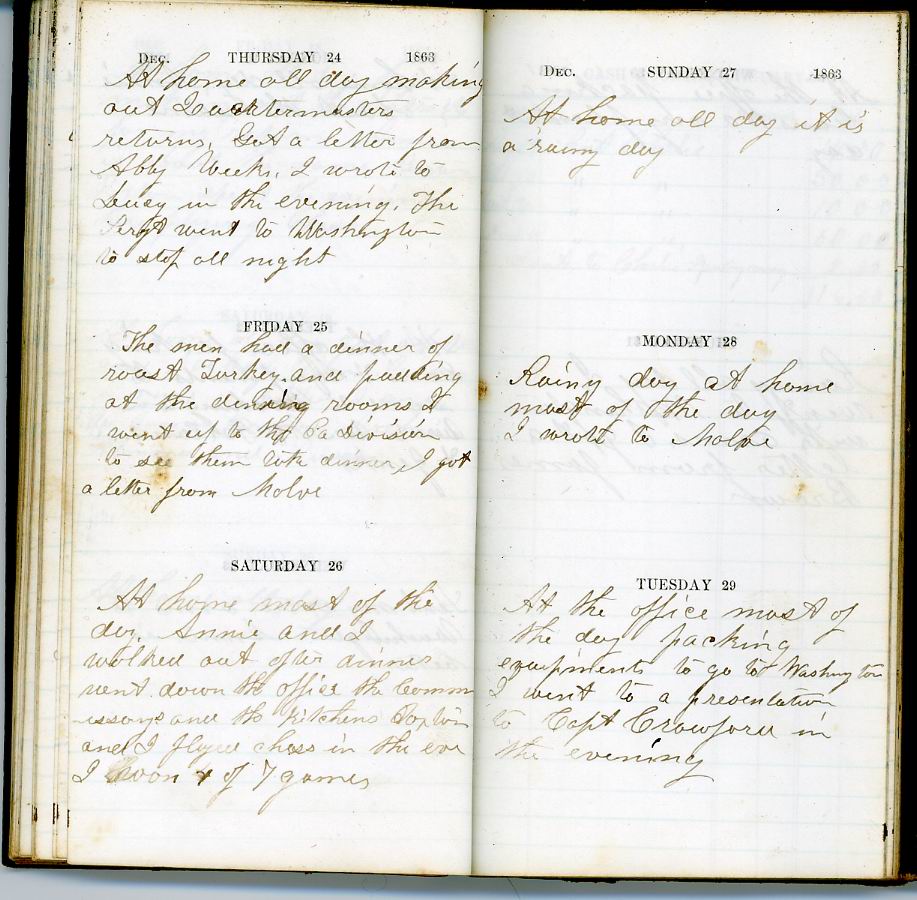 DEC. THURSDAY 24 1863
At home all day making
out Quartermasters
returns, Got a letter from
Abby Weeks, I wrote to
Lucy in the evening. The
Sergt went to Washington
to stop all night
FRIDAY 25
The men had a dinner of
roast Turkey and pudding
at the dinning rooms I
went up to the Pa Division
to see them dinner, I got
a letter from Molve
SATURDAY 26
At home most of the
day. Annie and I
walked out after dinner
went down the office the Comm
issary and the Kitchens
and I played chess in the eve
I won 4 of 7 games
DEC. SUNDAY 27 1863
At home all day it is
a rainy day
MONDAY 28
Rainy day at home
most of the day
I wrote to Molve
TUESDAY 29
At the office most of
the day packing
equipments to go to Washington
I went to a presentation
to Capt Crawford in
the evening